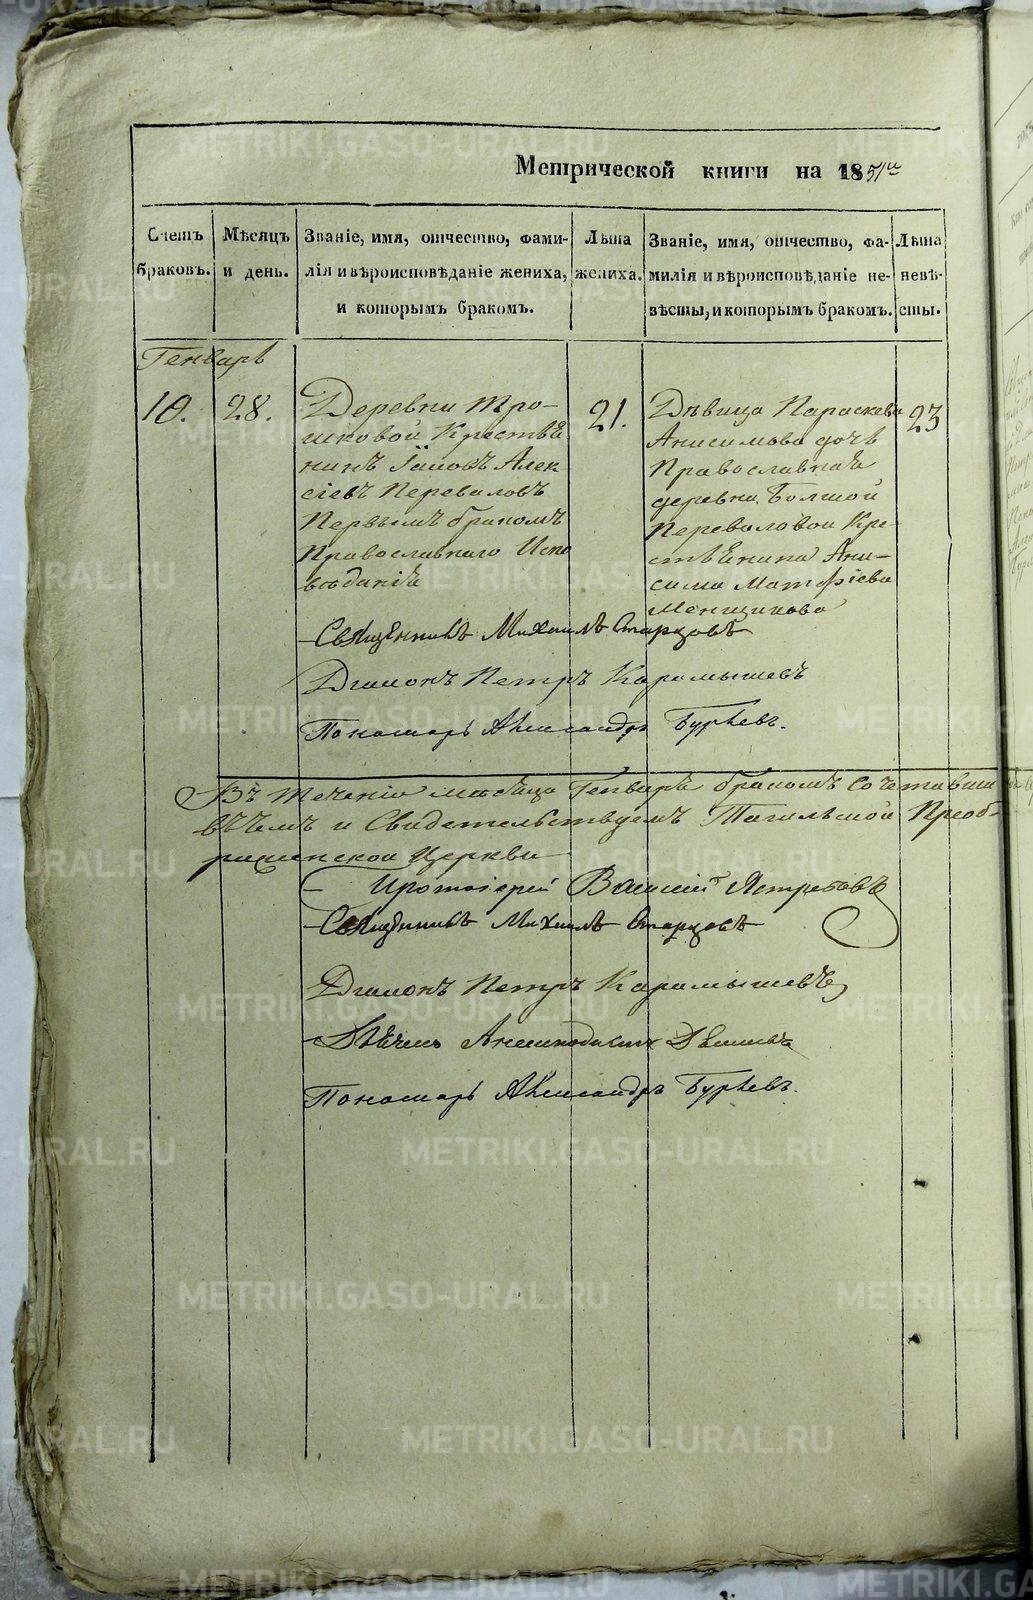 Метрической книги на 1851й
Счетъ браковъ.
Мѣсяцъ и день.
Званіе, имя, отчество, фами-
лія и вѣроисповѣданіе жениха,
и которымъ бракомъ.
Лѣта жениха.
Званіе, имя, отчество, фа-
милія и вѣроисповѣданіе не-
вѣсты, и которымъ бракомъ.
Лѣта невѣ-
сты.
Генварь
10.
28.
Деревни Тро-
шковой Крестья
нинъ Іаковъ Алек
сіевъ Переваловъ
Первымъ бракомъ
Православнаго Испо
вѣданія
21.
Дѣвица Параскева
Анисимова дочь
Православная
деревни Болшой
Переваловой Кре-
стьянина Ани-
сима Матфіева
Менщикова
23
Священникъ Михаилъ Старцовъ
Діаконъ Петръ Карамышевъ
Пономарь Александръ Бурѣевъ.
Въ теченіи мѣсяца Генваря бракомъ Сочетавши
въ чемъ и Свидетельствуемъ Тагильской Преоб-
раженской Церкви
Протоіерей Василій Ястребовъ
Священникъ Михаилъ Старцовъ
Діаконъ Петръ Карамышевъ
Дьячекъ
Пономарь Александръ Бурѣевъ.
METRIKI.GASO-URAL.RU